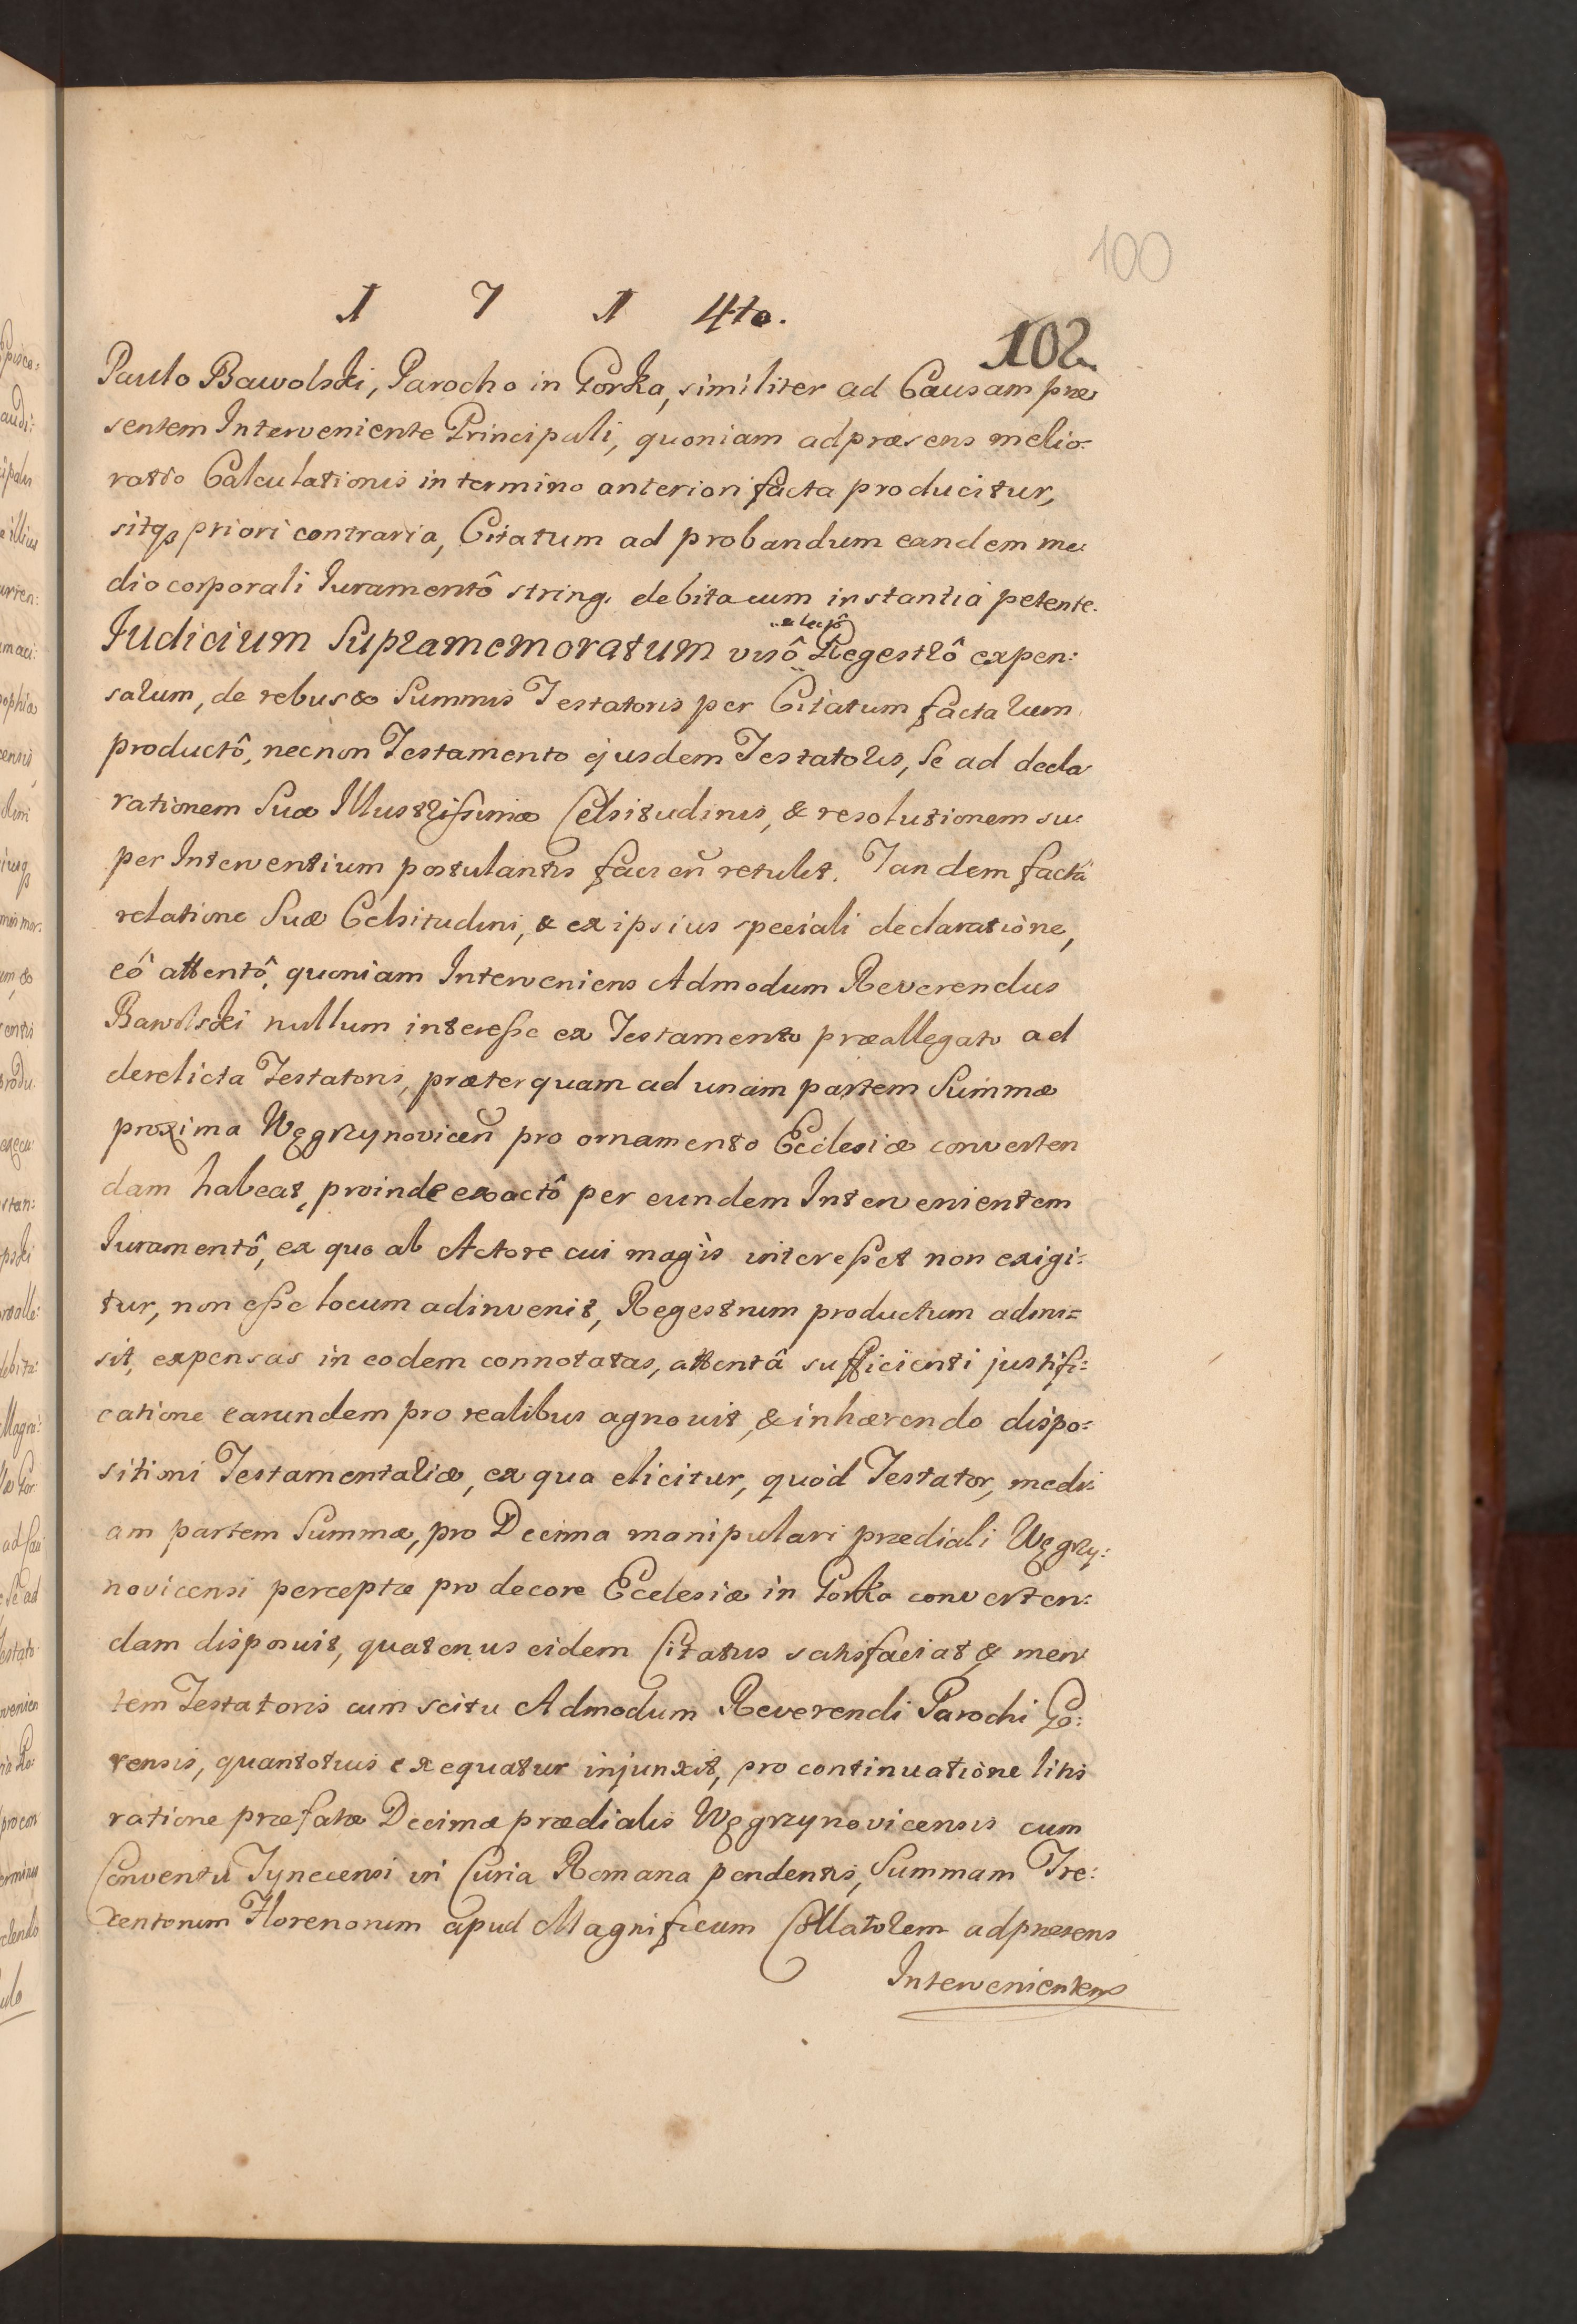 100
1 7 1 4to.
102.
Paulo Bawolski, Parocho in Gorka, similiter ad Causam præ
sentem Interveniente Principali, quoniam adpræsens melio-
ratio Calculationis in termino anteriori facta producitur,
sitqȝ priori contraria, Citatum ad probandum eandem me-
dio corporali Iuramentô string. debita cum instantia petente.
& lectô
Iudicium Supramemoratum visô Regestrô expen:
sarum, de rebus & Summis Testatoris per Citatum factarum
productô, necnon Testamento ejusdem Testatoris, se ad decla
rationem Suæ Illustrissimæ Celsitudinis, & resolutionem su-
per Interventium postulantis facien̄ retulit. Tandem factâ
relatione Suæ Celsitudini, & ex ipsius speciali declaratione,
eô attentô, quoniam Interveniens Admodum Reverendus
Bawolski nullum interesse ex Testamento præallegato ad
derelicta Testatoris, præterquam ad unam partem Summæ
proxima Węgrzynovicen̄ pro ornamento Ecclesiæ converten
dam habeat, proinde exactô per eundem Intervenientem
Iuramentô, ex quo ab Actore cui magis interesset non exigi:
tur, non esse locum adinvenit, Regestrum productum admi=
sit, expensas in eodem connotatas, attentâ sufficienti justifi:
catione earundem pro realibus agnovit, & inhærendo dispo:
sitioni Testamentaliæ, ex qua elicitur, quòd Testator, medi-
am partem Summæ, pro Decima manipulari prædiali Węgrzy:
novicensi perceptæ pro decore Ecclesiæ in Gorka converten:
dam disposuit, quatenus eidem Citatus satisfaciat & men
tem Testatoris cum scitu Admodum Reverendi Parochi Go:
rensis, quantotius exequatur injunxit, pro continuatione litis
ratione præfatæ Decimæ prædialis Węgrzynovicensis cum
Conventu Tynecensi in Curia Romana pendentis, Summam Tre:
centorum Florenorum apud Magnificum Collatorem adpræsens
Intervenientem